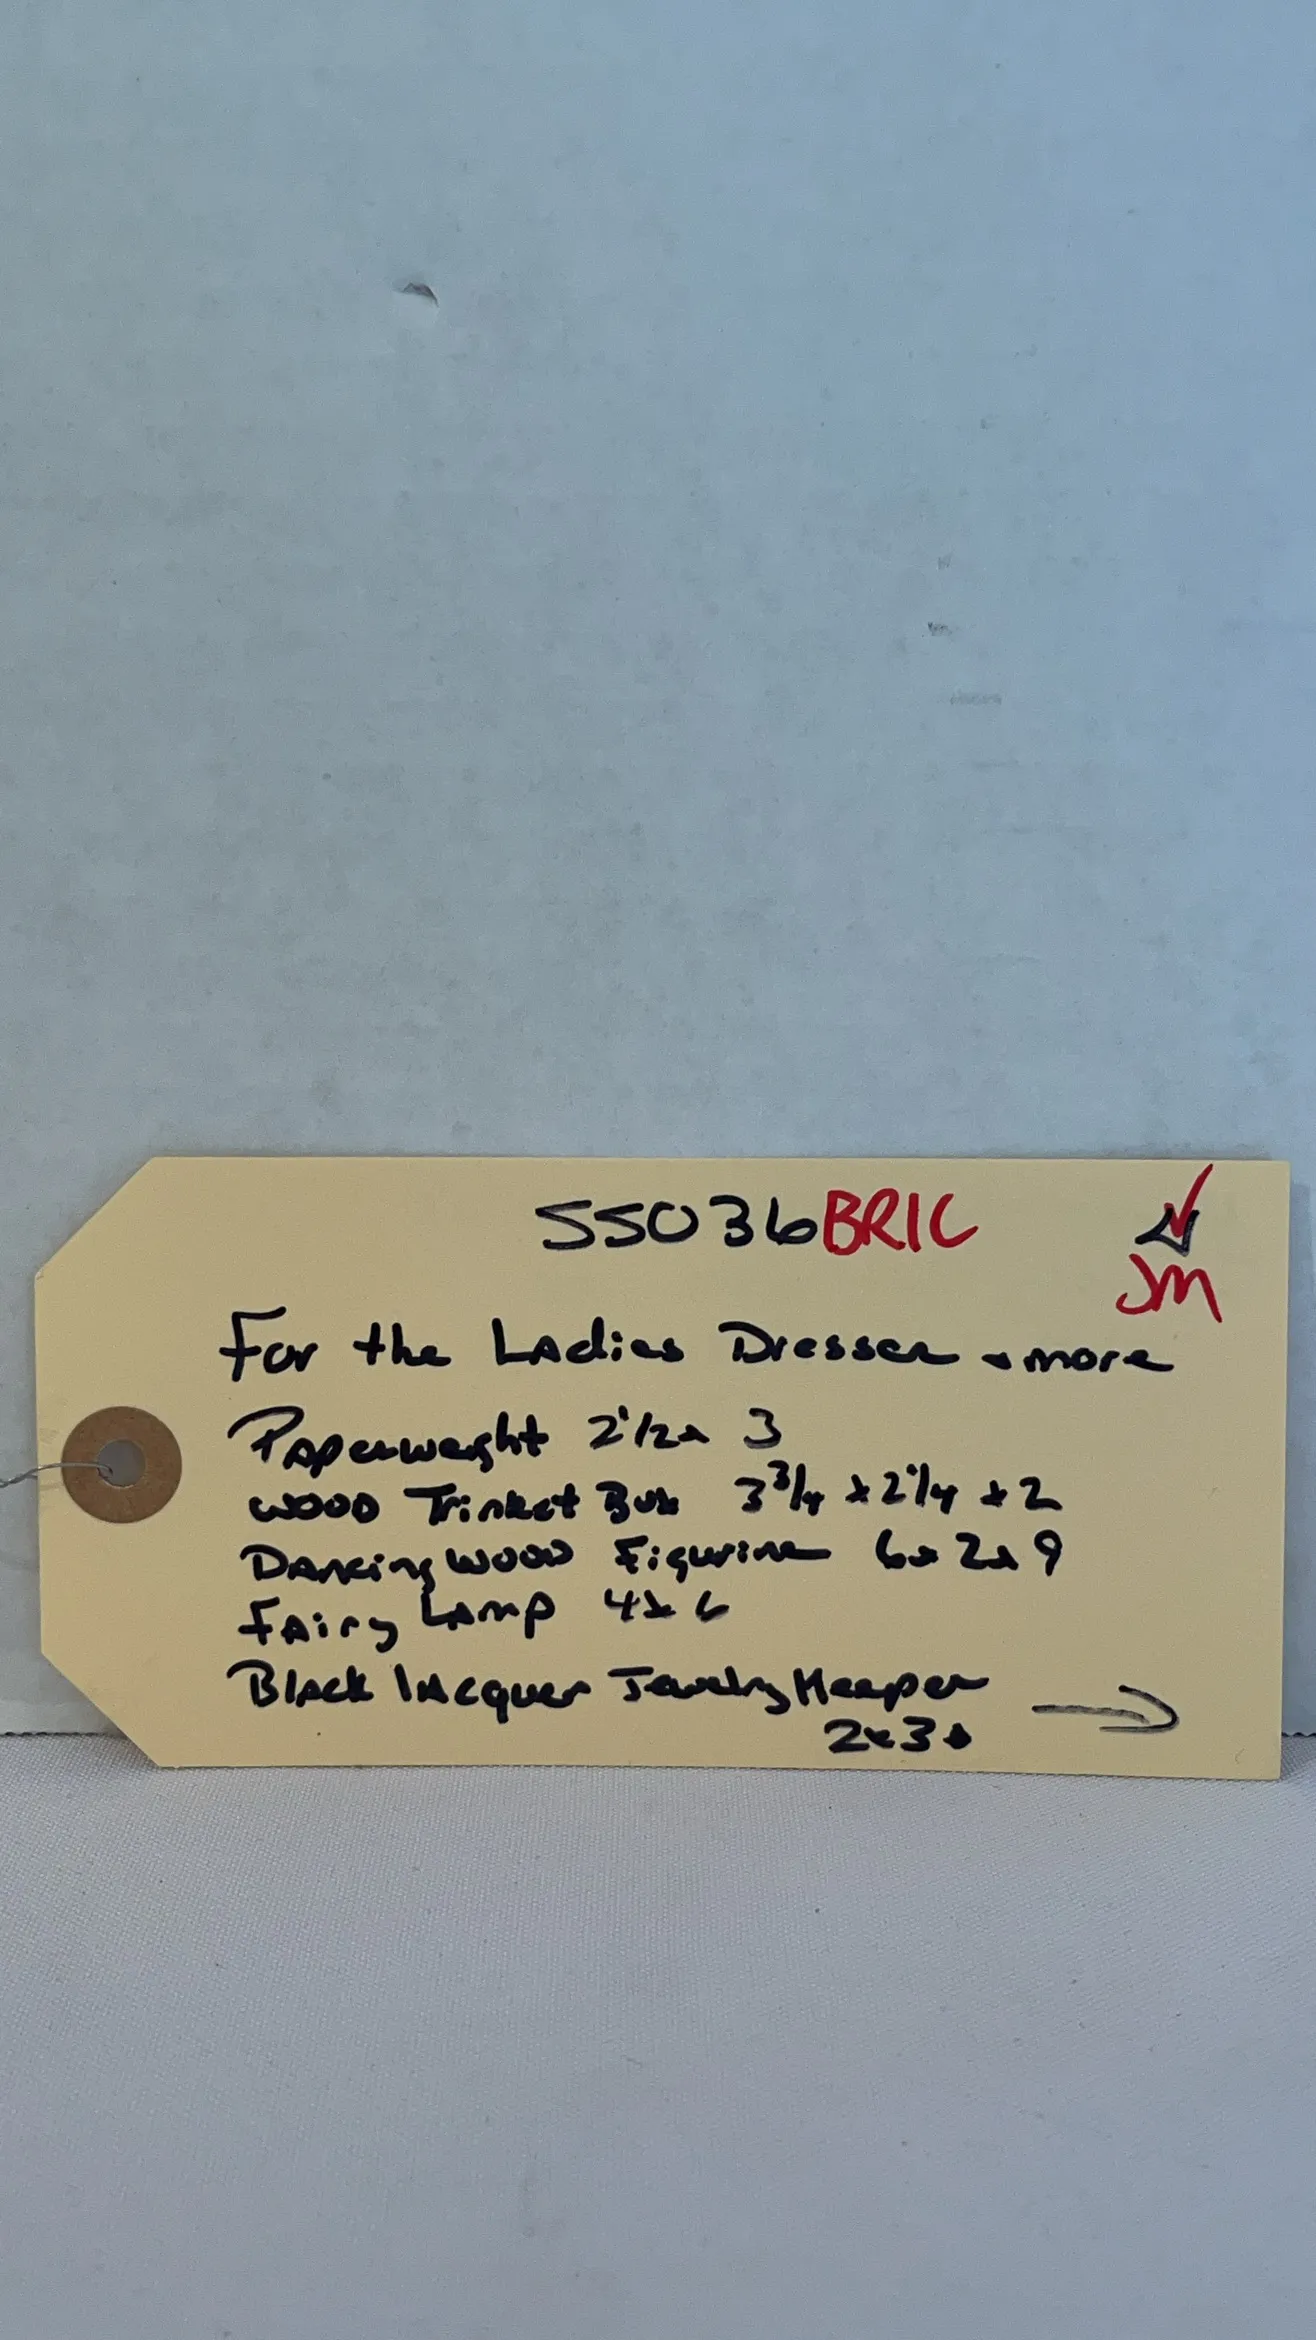 55036BRIC
JM
For the Ladies Dresser + more
Paperweight 2 1/2 x 3
Wood Trinket Box 3 3/4 x 2 1/4 x 2
Dancing Wood Figurine 6 x 2 x 9
Fairy Lamp 4 x 6
Black Lacquer Jewelry Keeper
2 x 3